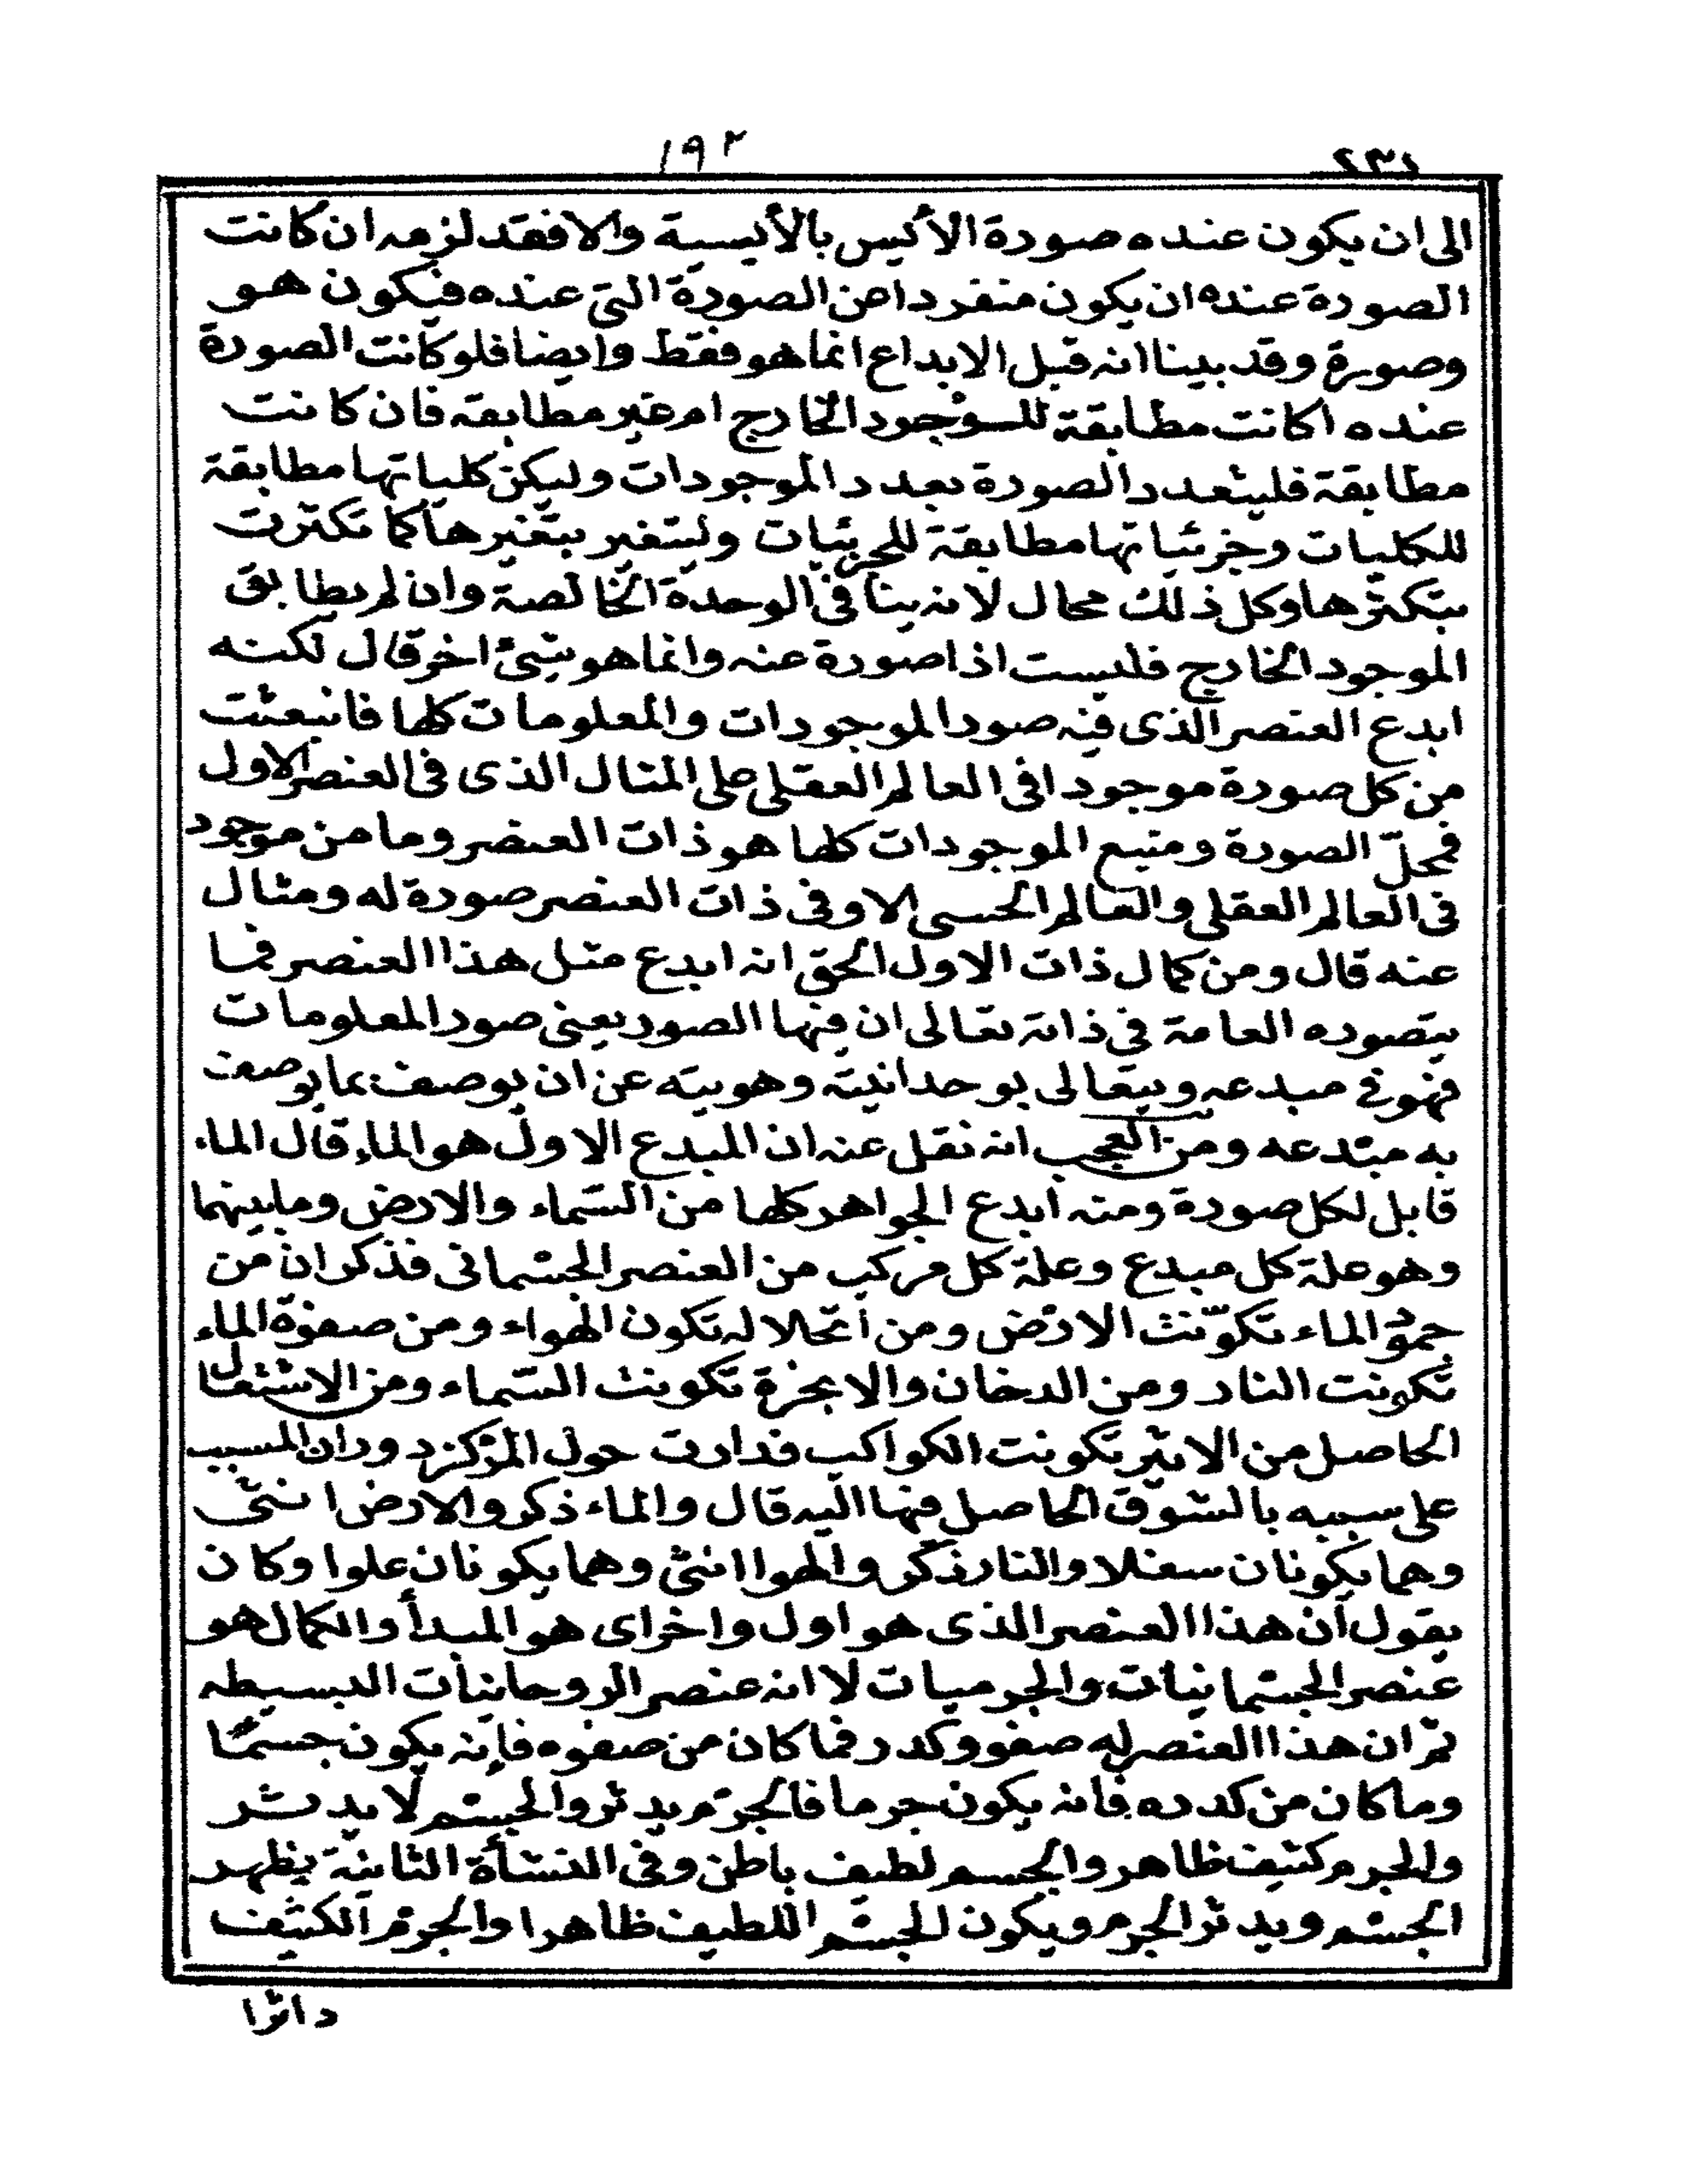 ١٩٢
الى ان يكون عنده صورة الأيس بالأيسية والا فقد لزمه ان كانت
الصورة عنده ان يكون منفردا من الصورة التى عنده فيكون هو
وصورة وقد بينا انه قبل الابداع انما هو فقط وايضا فلو كانت الصورة
عنده اكانت مطابقة للموجود الخارج ام غير مطابقه فان كانت
مطابقة فليتعدد الصورة بعدد الموجودات وليكن كلياتها مطابقة
للكليات وجزئياتها مطابقة للجزئيات وليتغير بتغيرها كما تكثرت
بتكثرها وكل ذلك محال لانه ينافى الوحدة الخالصة وان لم يطابق
الموجود الخارج فليست اذا صورة عنه وانما هو شئ اخر قال لكنه
ابدع العنصر الذى فيه صور الموجودات والمعلومات كلها فانبعثت
من كل صورة موجودا فى العالم العقلى على المثال الذى فى العنصر الاول
فمحلّ الصورة ومنبع الموجودات كلها هو ذات العنصر وما من موجود
فى العالم العقلى والعالم الحسى الا وفى ذات العنصر صورة له ومثال
عنه قال ومن كمال ذات الاول الحق انه ابدع مثل هذا العنصر فما
يتصوره العامة فى ذاته تعالى ان فيها الصور يعنى صور المعلومات
فهو فى مبدعه ويتعالى بوحدانيته وهويته عن ان يوصف بما يوصف
به مبتدعه ومن العجب انه نقل عنه ان المبدع الاول هو الماء قال الماء
قابل لكل صورة ومنه ابدع الجواهر كلها من السّماء والارض وما بينهما
وهو علة كل مبدع وعلة كل مركب من العنصر الجسمانى فذكر ان من
جمود الماء تكوّنت الارض ومن انحلاله تكون الهواء ومن صفوة الماء
تكونت النار ومن الدخان والابخرة تكونت السّماء ومن الاشتعال
الحاصل من الاثير تكونت الكواكب فدارت حول المركز دوران المسبب
على سببه بالشوق الحاصل فيها اليه قال والماء ذكر والارض انثى
وهما يكونان سفلا والنار ذكر والهوا انثى وهما يكونان علوا وكان
يقول أن هذا العنصر الذى هو اول واخر اى هو المبدأ والكمال هو
عنصر الجسمانيات والجرميات لا انه عنصر الروحانيات البسيطه
ثمّ ان هذا العنصر له صفو وكدر فما كان من صفوه فإنه يكون جسمًا
وما كان من كدره فانه يكون جرما فالجرم يدثر والجسم لا يدثر
والجرم كثيف ظاهر والجسم لطيف باطن وفى النشأة الثانية يظهر
الجسم ويدثر الجرم ويكون الجسم اللطيف ظاهرا والجرم الكثيف
داثرا